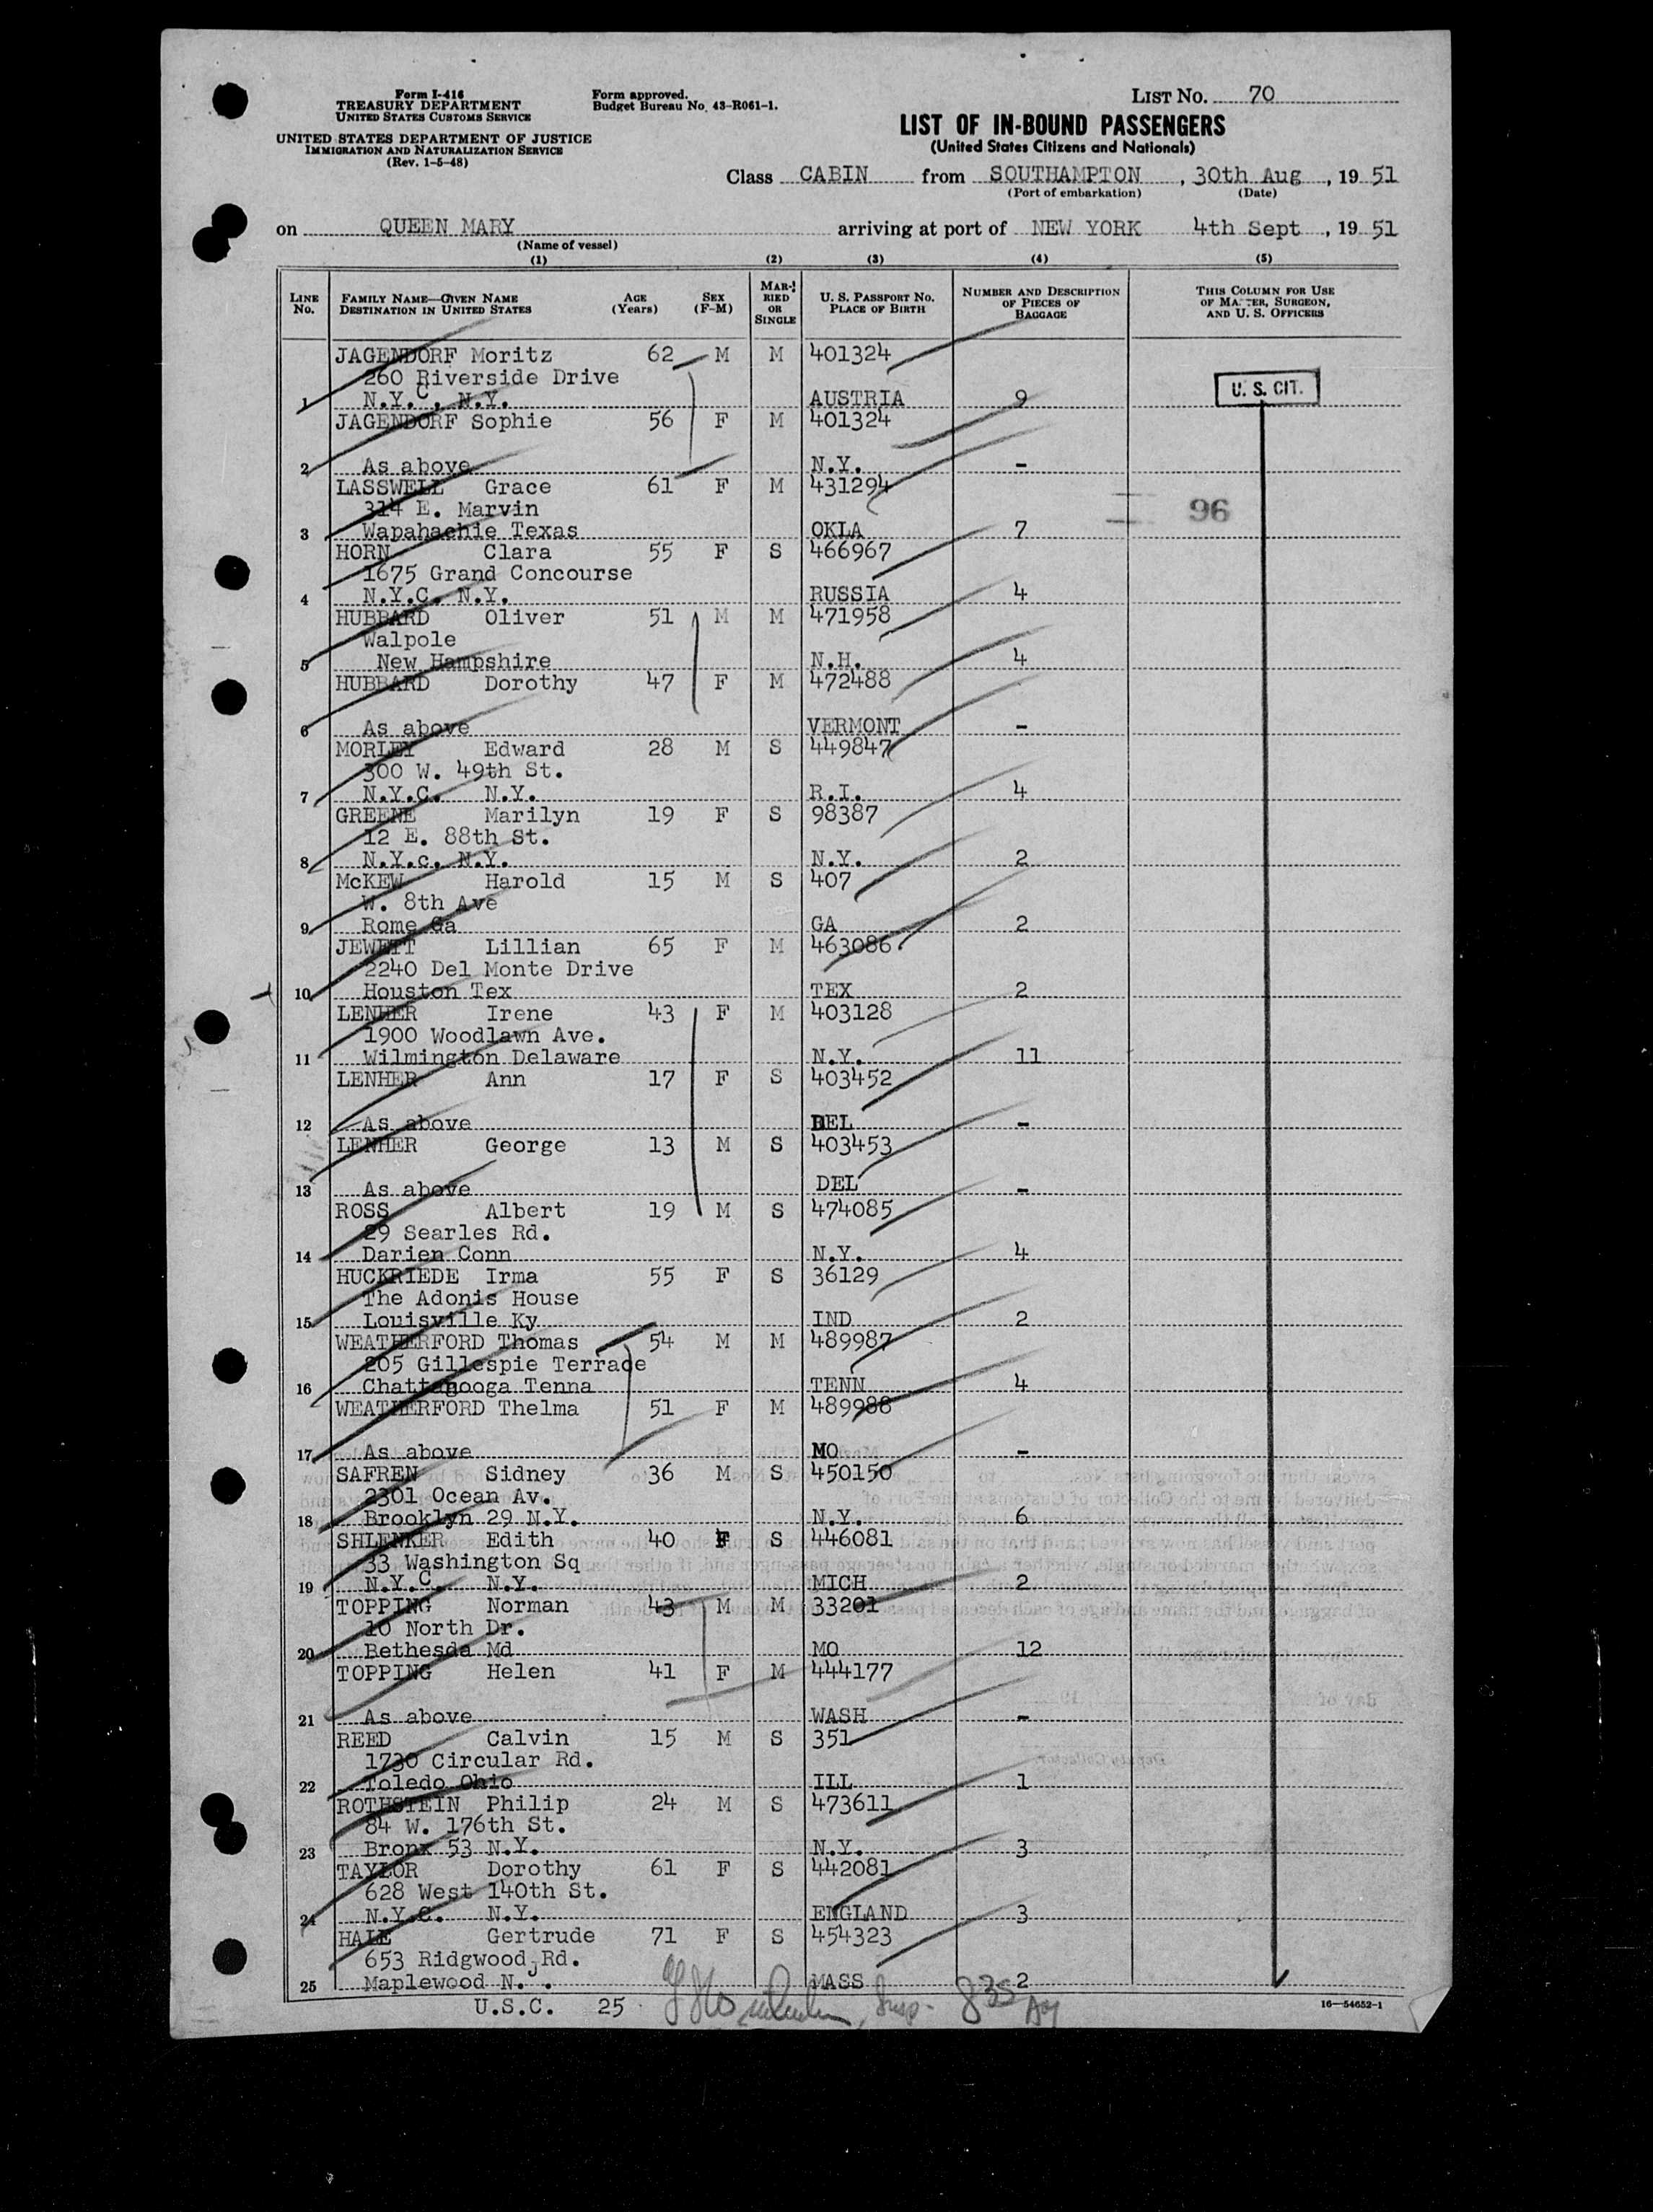 Form I-416
TREASURY DEPARTMENT
UNITED STATES CUSTOMS SERVICE
UNITED STATES DEPARTMENT OF JUSTICE
IMMIGRATION AND NATURALIZATION SERVICE
(Rev. 1-5-48)
Form approved.
Budget Bureau No. 43-R061-1.
LIST NO. 70
LIST OF IN-BOUND PASSENGERS
(United States Citizens and Nationals)
Class CABIN from SOUTHAMPTON, 30th Aug, 1951
(Port of embarkation) (Date)
on QUEEN MARY arriving at port of NEW YORK 4th Sept, 1951
(Name of vessel)
(1) (2) (3) (4) (5)
LINE NO. FAMILY NAME—GIVEN NAME DESTINATION IN UNITED STATES AGE (Years) SEX (F-M) MARRIED OR SINGLE U. S. PASSPORT NO. PLACE OF BIRTH NUMBER AND DESCRIPTION OF PIECES OF BAGGAGE THIS COLUMN FOR USE OF MASTER, SURGEON, AND U. S. OFFICERS
JAGENDORF Moritz 62 M M 401324
260 Riverside Drive
1 N.Y.C, N.Y. AUSTRIA 9 U. S. CIT.
JAGENDORF Sophie 56 F M 401324
2 As above N.Y. -
LASSWELL Grace 61 F M 431294
314 E. Marvin 96
3 Wapahachie Texas OKLA 7
HORN Clara 55 F S 466967
1675 Grand Concourse
4 N.Y.C. N.Y. RUSSIA 4
HUBBARD Oliver 51 M M 471958
Walpole
5 New Hampshire N.H. 4
HUBBARD Dorothy 47 F M 472488
6 As above VERMONT -
MORLEY Edward 28 M S 449847
300 W. 49th St.
7 N.Y.C. N.Y. R.I. 4
GREENE Marilyn 19 F S 98387
12 E. 88th St.
8 N.Y.c. N.Y. N.Y. 2
McKEW Harold 15 M S 407
W. 8th Ave
9 Rome Ga GA 2
JEWETT Lillian 65 F M 463086
2240 Del Monte Drive
10 Houston Tex TEX 2
LENHER Irene 43 F M 403128
1900 Woodlawn Ave.
11 Wilmington Delaware N.Y. 11
LENHER Ann 17 F S 403452
12 As above DEL -
LENHER George 13 M S 403453
13 As above DEL -
ROSS Albert 19 M S 474085
29 Searles Rd.
14 Darien Conn N.Y. 4
HUCKRIEDE Irma 55 F S 36129
The Adonis House
15 Louisville Ky IND 2
WEATHERFORD Thomas 54 M M 489987
205 Gillespie Terrade
16 Chattanooga Tenna TENN 4
WEATHERFORD Thelma 51 F M 489988
17 As above MO -
SAFREN Sidney 36 M S 450150
2301 Ocean Av.
18 Brooklyn 29 N.Y. N.Y. 6
SHLENKER Edith 40 F S 446081
33 Washington Sq
19 N.Y.C. N.Y. MICH 2
TOPPING Norman 43 M M 33201
10 North Dr.
20 Bethesda Md MO 12
TOPPING Helen 41 F M 444177
21 As above WASH -
REED Calvin 15 M S 351
1730 Circular Rd.
22 Toledo Ohio ILL 1
ROTHSTEIN Philip 24 M S 473611
84 W. 176th St.
23 Bronx 53 N.Y. N.Y. 3
TAYLOR Dorothy 61 F S 442081
628 West 140th St.
24 N.Y.C. N.Y. ENGLAND 3
HALE Gertrude 71 F S 454323
653 Ridgwood Rd.
25 Maplewood N.J. MASS 2
U.S.C. 25
16—54652-1